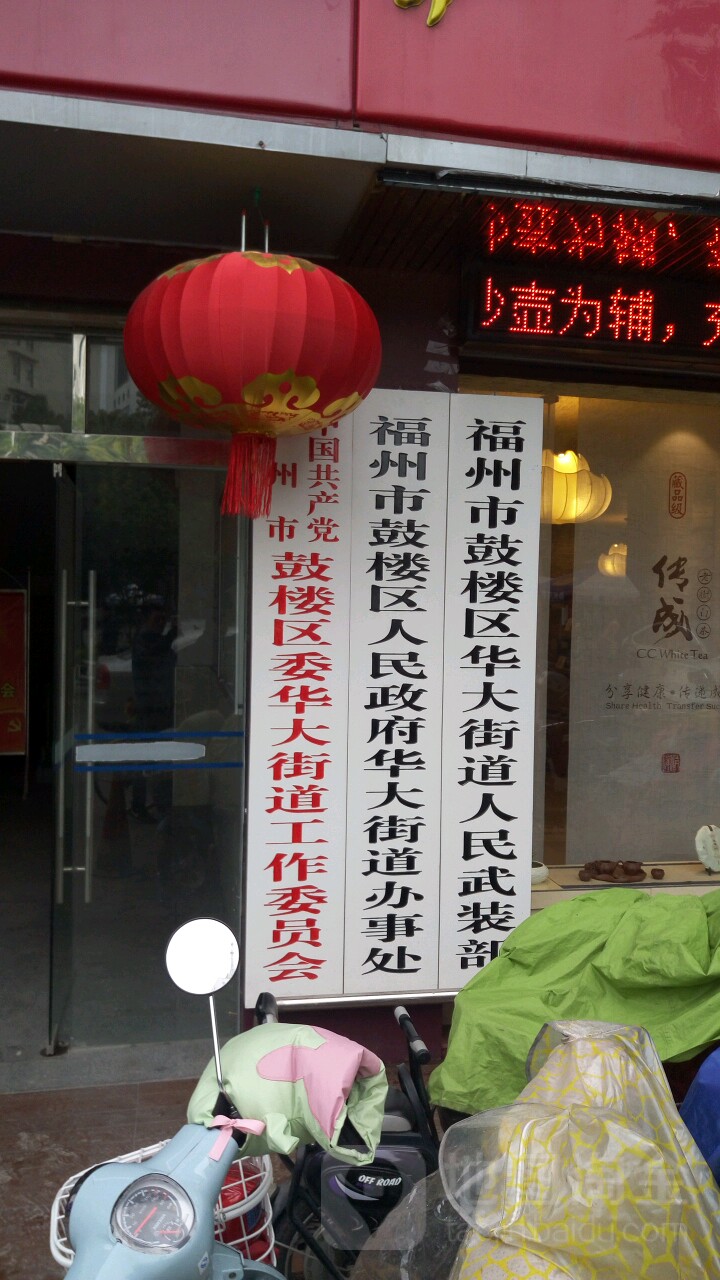 少壶为辅，
中国共产党
州市
鼓楼区委华大街道工作委员会
福州市鼓楼区人民政府华大街道办事处
福州市鼓楼区华大街道人民武装部
藏品级
传成
CC White Tea
分享健康·传递成
Share Health Transfer Suc
会
OFF ROAD